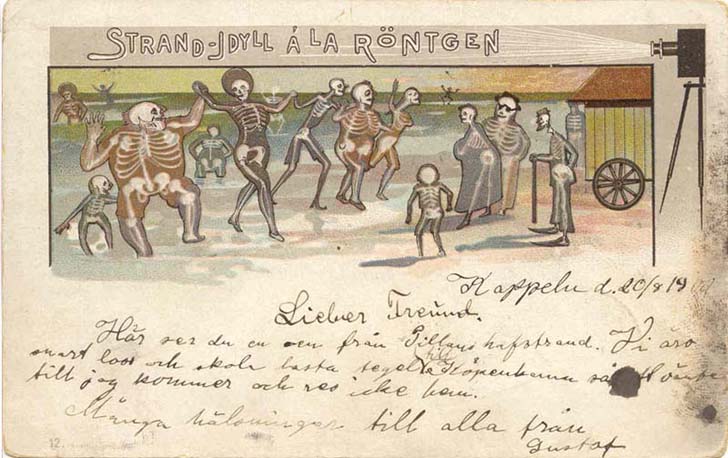 STRAND-IDYLL Á LA RÖNTGEN
Kappeln d. 20/8 19
Lieber Freund.
Här ser du en från hafstrand. Vi äro
snart loss och skola lasta tegel till Köpenhamn så
till jag kommer och res icke hem.
Många hälsningar till alla från
Gustaf
12.